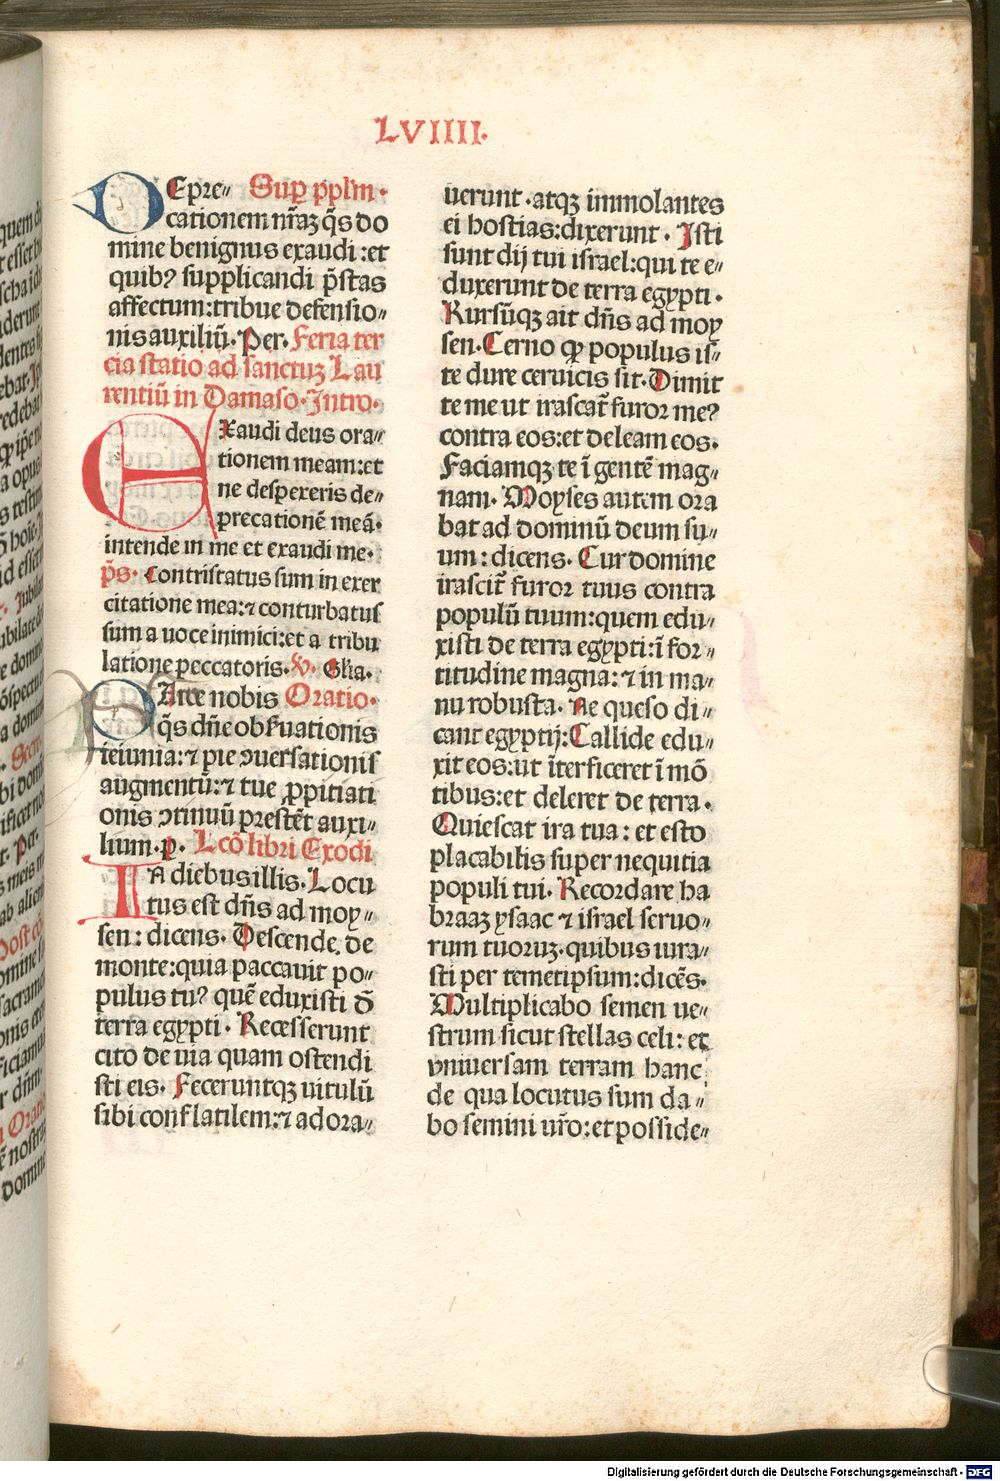 LVIIII.
DEpre〃 Sup pplm.
cationem nr̃aꝫ q̃s do
mine benignus exaudi:et
quibꝰ supplicandi p̃stas
affectum:tribue defensio〃
nis auxiliũ. Per. Feria ter
cia statio ad sanctuꝫ Lau
rentiũ in Damaso. Intro.
EXaudi deus ora〃
tionem meam:et
ne despexeris de〃
precationẽ meã.
intende in me et exaudi me.
p̃s. Contristatus sum in exer
citatione mea:⁊ conturbatus
sum a uoce inimici:et a tribu
latione peccatoris. V. Gl̃ia.
PArce nobis Oratio.
q̃s dñe obẜuationis
ieiunia:⁊ pie ꝯuersationis
augmentũ:⁊ tue ꝓpitiati
onis ꝯtinuũ prestẽt auxi〃
lium.p. Lcõ libri Exodi
IN diebus illis. Locu
tus est dñs ad moy〃
sen: dicens. Descende de
monte:quia paccauit po〃
pulus tuꝰ quẽ eduxisti d̃
terra egypti. Recesserunt
cito de uia quam ostendi
sti eis. Feceruntqꝫ uitulũ
sibi conflatilem:⁊ adora〃
uerunt. atqꝫ immolantes
ei hostias:dixerunt. Isti
sunt dij tui israel:qui te e〃
duxerunt de terra egypti.
Rursũqꝫ ait dñs ad moy
sen. Cerno ꝙ populus is̃〃
te dure ceruicis sit. Dimit
te me ut irascat̃ furor meꝰ
contra eos:et deleam eos.
Faciamqꝫ te ĩ gentẽ mag〃
nam. Moyses autem ora
bat ad dominũ deum su〃
um: dicens. Cur domine
irascit̃ furor tuus contra
populũ tuum:quem edu〃
xisti de terra egypti:ĩ for〃
titudine magna:⁊ in ma〃
nu robusta. Ne queso di〃
cant egyptij:Callide edu〃
xit eos:ut ĩterficeret ĩ mõ
tibus:et deleret de terra.
Quiescat ira tua: et esto
placabilis super nequitia
populi tui. Recordare ha
braaꝫ ysaac ⁊ israel seruo〃
rum tuoruꝫ.quibus iura〃
sti per temetipsum:dicẽs.
Multiplicabo semen ue〃
strum sicut stellas celi: et
vniuersam terram hanc
de qua locutus sum da〃
bo semini ur̃o:et posside〃
Digitalisierung gefördert durch die Deutsche Forschungsgemeinschaft - DFG